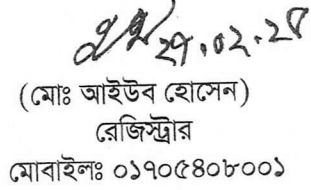 ২৭.০২.২৪
(মোঃ আইউব হোসেন)
রেজিস্ট্রার
মোবাইলঃ ০১৭০৫৪০৮০০১